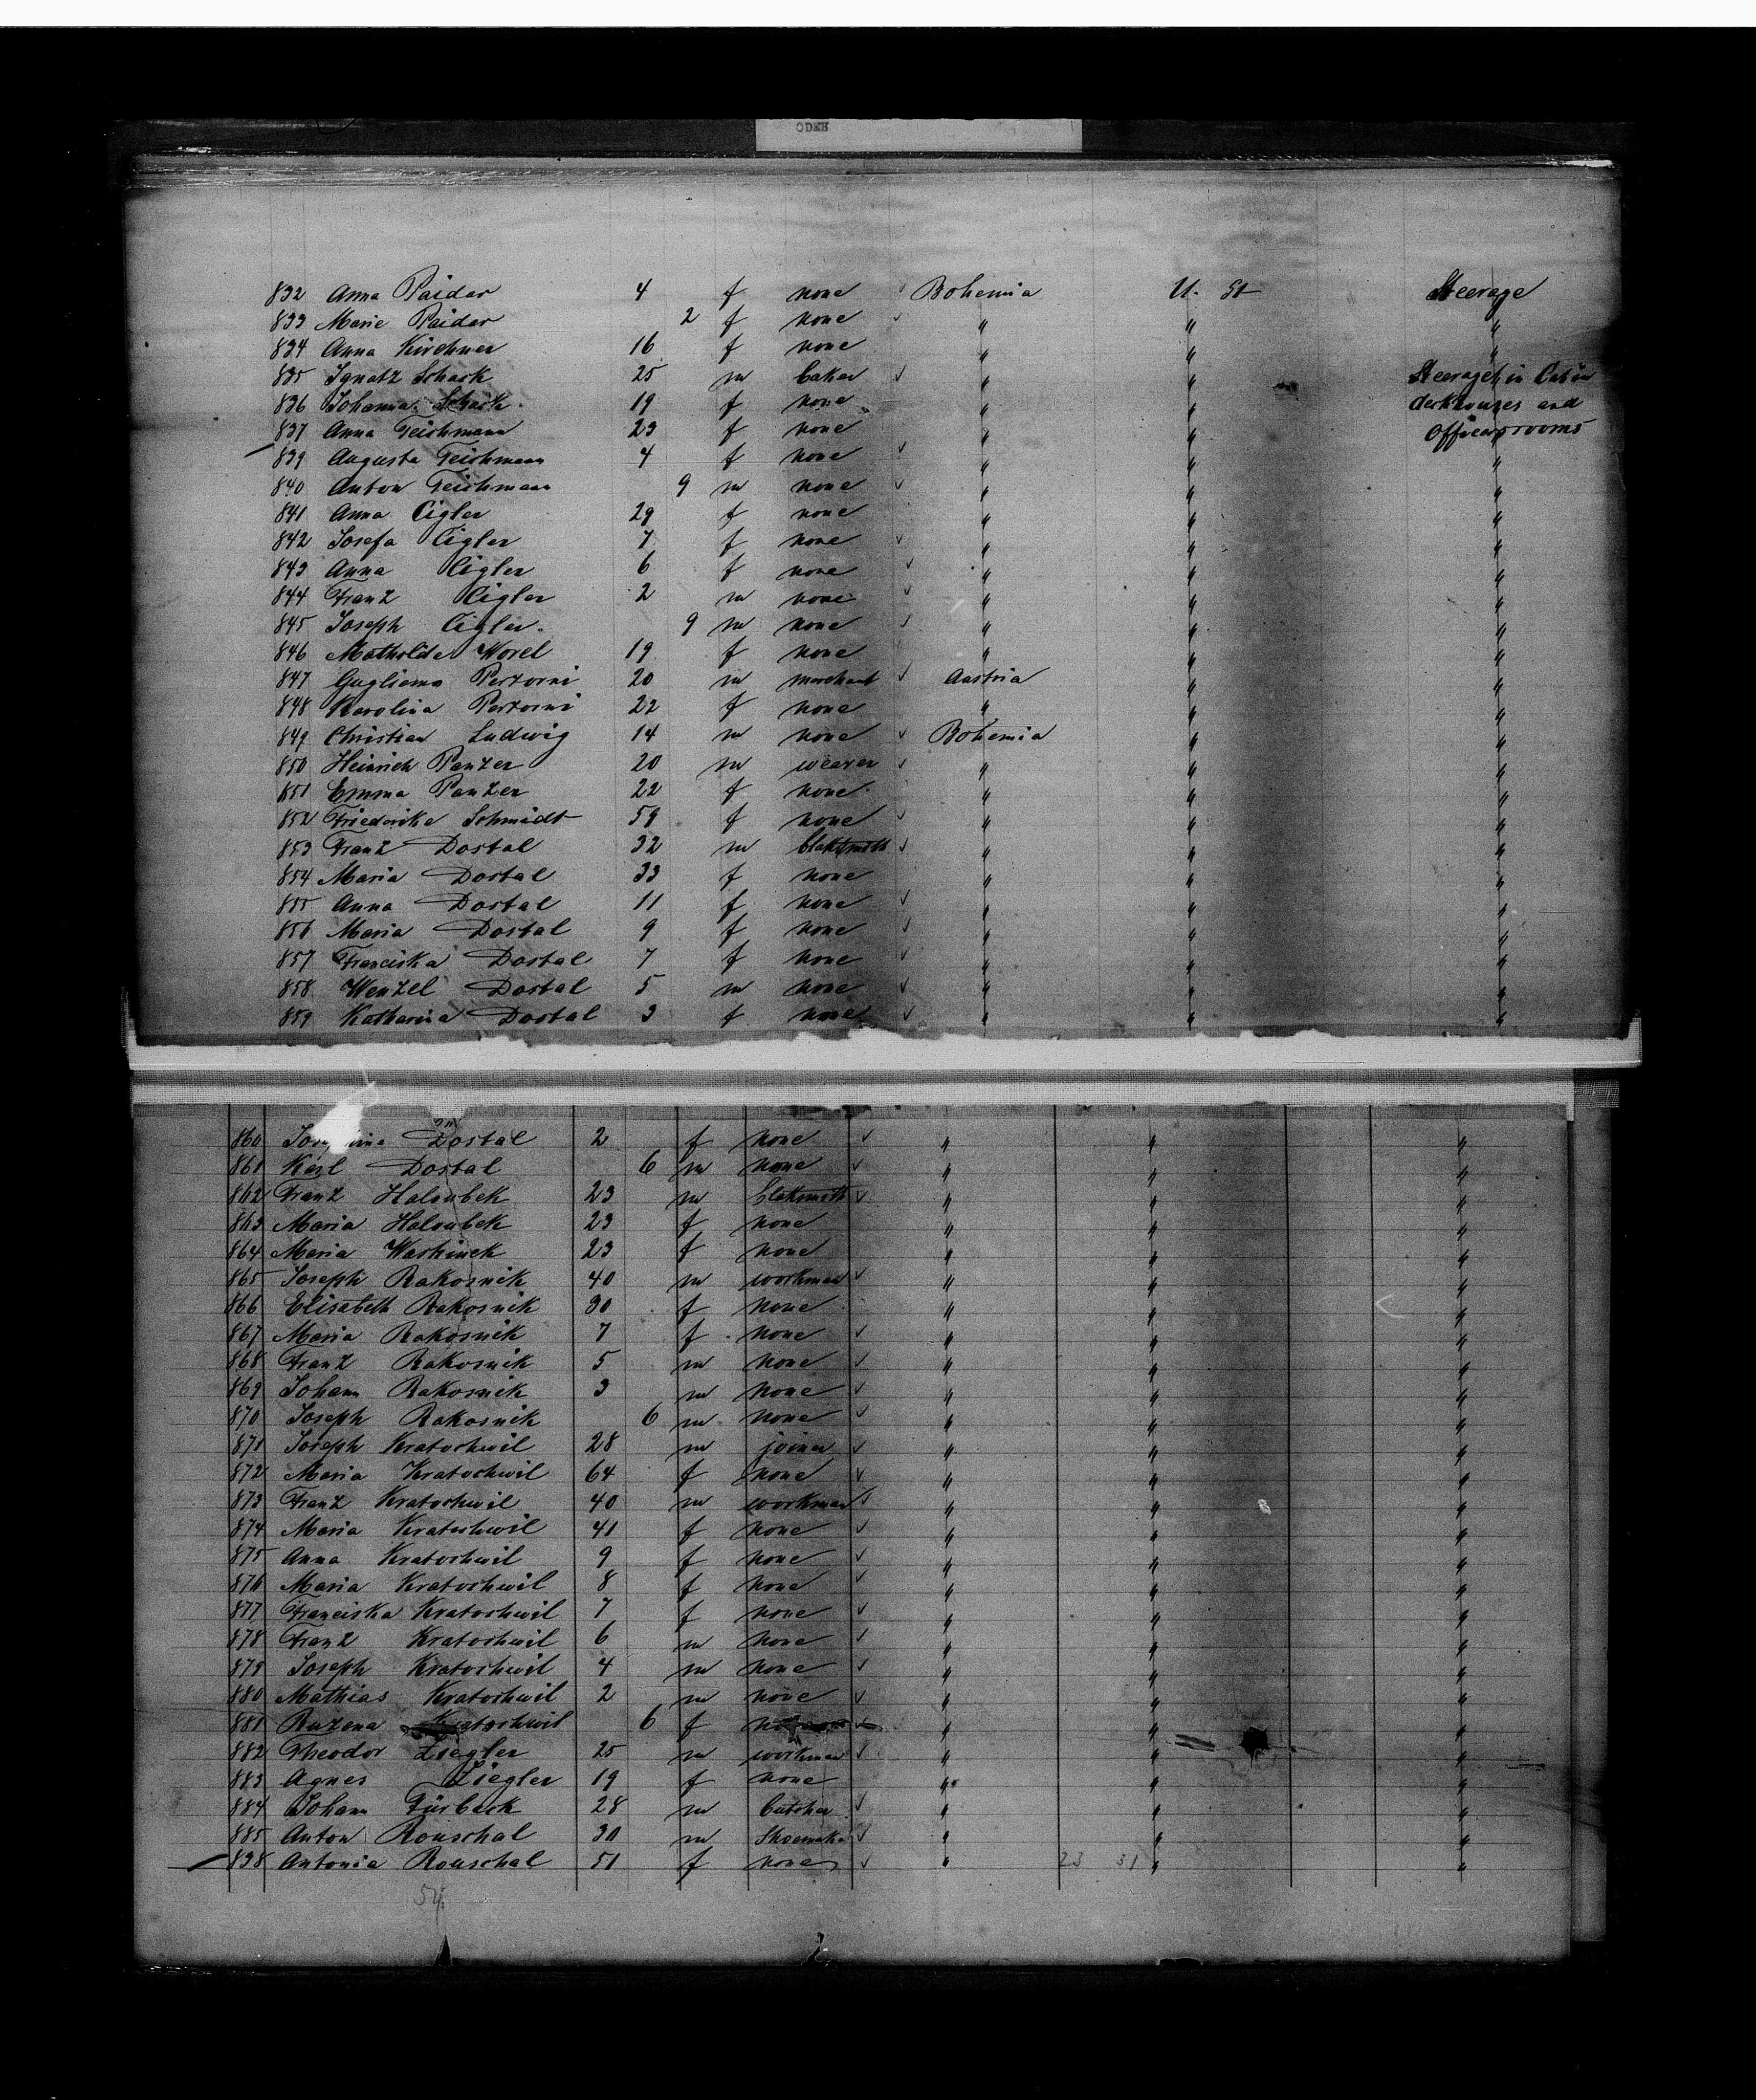 ODEH
832 Anna Paidar 4 f none ✓ Bohemia U. St Steerage
833 Marie Paidar 2 f none ✓ " " "
834 Anna Kirchner 16 f none " " "
835 Ignatz Schack 25 m baker ✓ " " Steerage, in Cabin
836 Johanna Schack 19 f none " " deckhouses and
837 Anna Teichmann 23 f none " " Officersrooms
839 Augusta Teichmann 4 f none ✓ " " "
840 Anton Teichmann 9 m none ✓ " " "
841 Anna Cigler 29 f none " " "
842 Josefa Cigler 7 f none ✓ " " "
843 Anna Cigler 6 f none ✓ " " "
844 Franz Cigler 2 m none ✓ " " "
845 Joseph Cigler 9 m none ✓ " " "
846 Matholde Worel 19 f none " " "
847 Gugliemo Pertorni 20 m merchant ✓ Austria " "
848 Karolina Pertorni 22 f none " " "
849 Christian Ludwig 14 m none ✓ Bohemia " "
850 Heinrich Panzer 20 m weaver ✓ " " "
851 Emma Panzer 22 f none " " "
852 Friederike Schmidt 59 f none ✓ " " "
853 Franz Dostal 32 m blaksmith ✓ " " "
854 Maria Dostal 33 f none " " "
855 Anna Dostal 11 f none ✓ " " "
856 Maria Dostal 9 f none ✓ " " "
857 Franciska Dostal 7 f none ✓ " " "
858 Wenzel Dostal 5 m none ✓ " " "
859 Katharina Dostal 3 f none ✓ " " "
860 Dostal 2 f none ✓ " " "
861 Karl Dostal 6 m none ✓ " " "
862 Franz Haloubek 23 m blaksmith ✓ " " "
863 Maria Haloubek 23 f none " " "
864 Maria Washinek 23 f none " " "
865 Joseph Rakosnik 40 m workman ✓ " " "
866 Elisabeth Rakosnik 30 f none " " "
867 Maria Rakosnik 7 f none ✓ " " "
868 Franz Rakosnik 5 m none ✓ " " "
869 Johann Rakosnik 3 m none ✓ " " "
870 Joseph Rakosnik 6 m none ✓ " " "
871 Joseph Kratochwil 28 m joiner ✓ " " "
872 Maria Kratochwil 64 f none ✓ " " "
873 Franz Kratochwil 40 m workman ✓ " " "
874 Maria Kratochwil 41 f none ✓ " " "
875 Anna Kratochwil 9 f none ✓ " " "
876 Maria Kratochwil 8 f none ✓ " " "
877 Franciska Kratochwil 7 f none ✓ " " "
878 Franz Kratochwil 6 m none ✓ " " "
879 Joseph Kratochwil 4 m none ✓ " " "
880 Mathias Kratochwil 2 m none ✓ " " "
881 Ruzena Kratochwil 6 f ✓ " " "
882 Theodor Ziegler 25 m workman ✓ " " "
883 Agnes Ziegler 19 f none " " "
884 Johann Fürback 28 m butcher ✓ " " "
885 Anton Rouschal 30 m Shoemaker ✓ " " "
838 Antonia Rouschal 51 f none ✓ " 23 31 " "
54